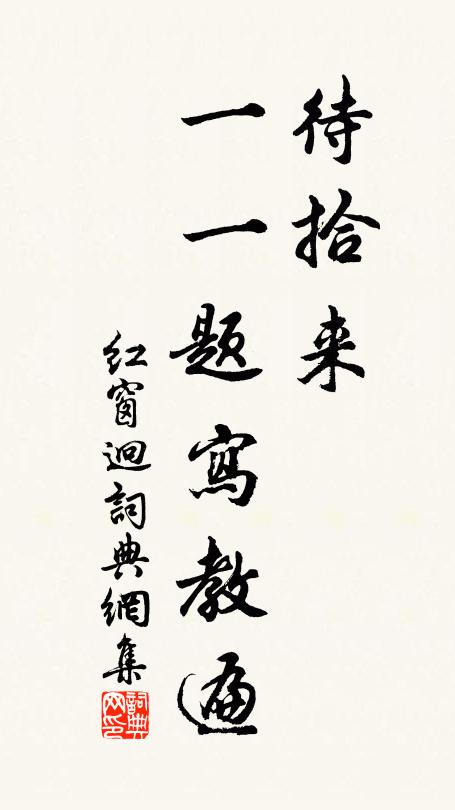 待拾来
一一题寫教遍
红窗迥詞典網集
詞典网印